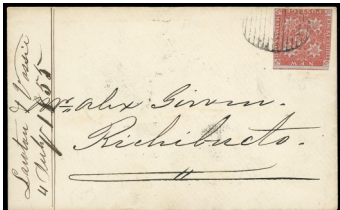 Lawton & Vassie
4 July 1855
Mr. Alex Girvan.
Richibucto.